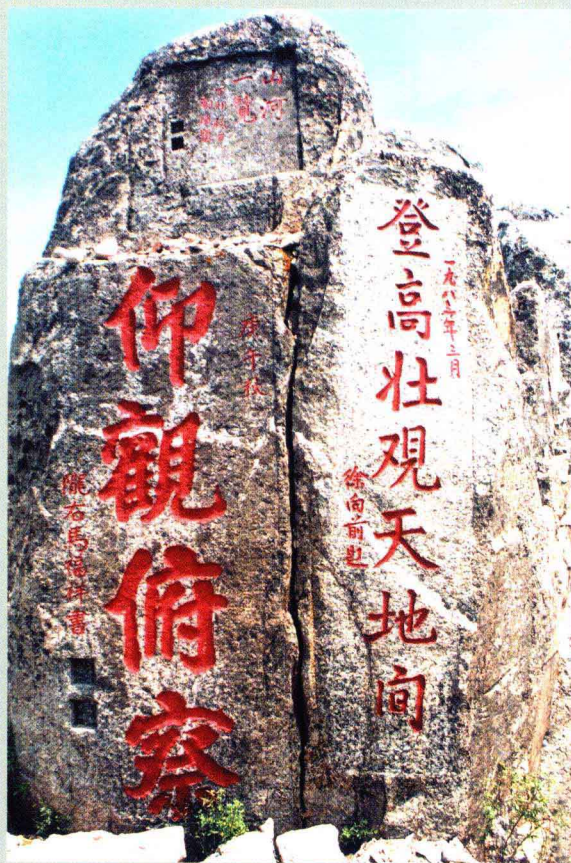 山河
一览
登高壮观天地间
一九八六年三月
徐向前题
仰觀俯察
庚午秋
隴右馬福祥書